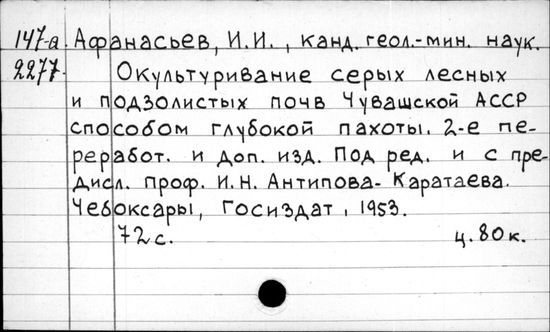 147-а Афанасьев, И.И., канд. геол.-мин. наук.
2277. Окультуривание серых лесных
и подзолистых почв Чувашской АССР
способом глубокой пахоты. 2-е пе-
реработ. и доп. изд. Под ред. и с пре-
дисл. проф. И.Н. Антипова-Каратаева.
Чебоксары, Госиздат, 1953.
72 с. ц. 80 к.